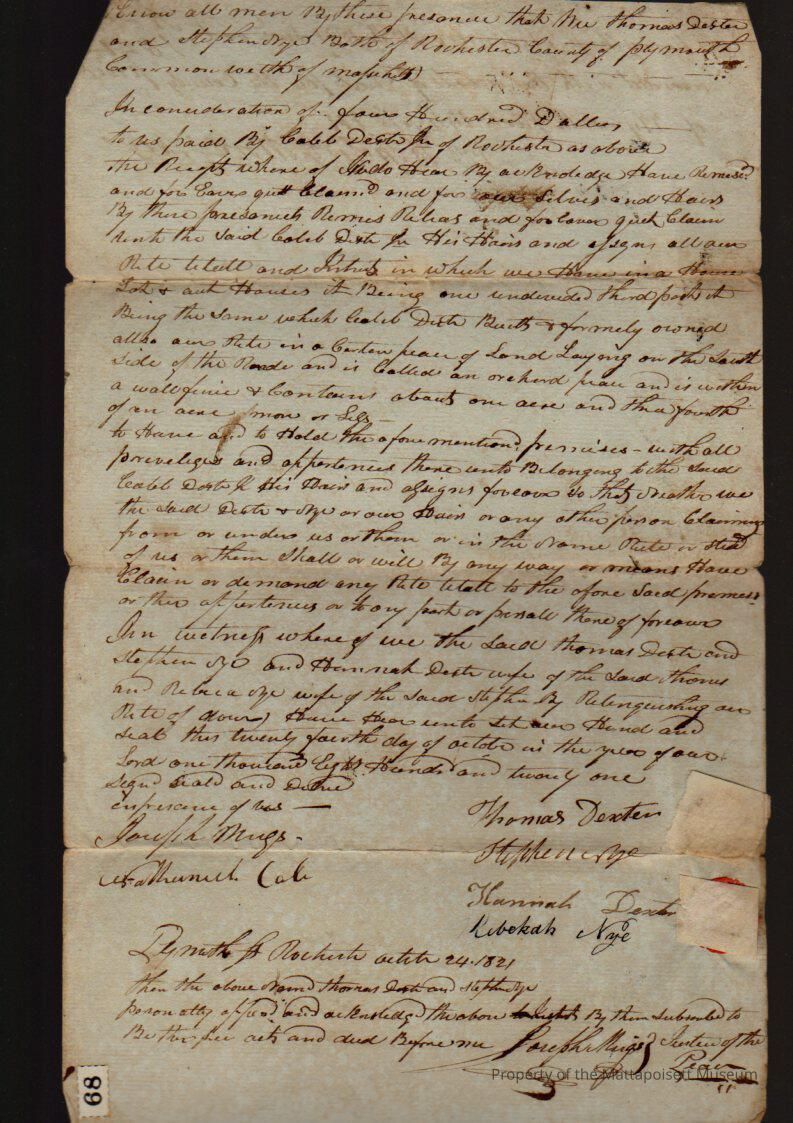 Know all men By these presance that We Thomas Dexter
and Stephen Nye Both of Rochester County of plymouth
Common welth of
In concideration of four Hundred Dallers
to us paid By Caleb Dexter Jr of Rochester as above
the Recept where of Wedo Hear By acknoledge Have Remised
and for Ever quit Claimd and for our Selvis and Hairs
By these presants Remis Releas and for Ever quit Claim
unto the Said Caleb Dexter Jr His Hairs and assigns all our
Rite titell and Intrest in which we Have in a House
Lot & out Houses it Being one undevided third part it
Being the Same which Caleb Dexter Built & formely owned
allso our Rite in a Certen peace of Land Laying on the South
Side of the Roade and is Called an orcherd peace and is within
a wall fence & Contains about one acre and three fourth
of an acre more or Less
to Have and to Hold the afore mentiond premises - with all
preveleges and appertences there unto Belonging to the Said
Caleb Dexter Jr His Hairs and assigns forever So that Neather we
the Said Dexter & Nye or our Hairs or any other person Claiming
from or under us or them or in the Name Rite or Sted
of us or them Shall or will By any way or means Have
Claim or demand any Rite titell to the afore Said premess
or ther appertences or to any part or persall there of forever
In wetness where of we the Said Thomas Dexter and
Stephen Nye and Hannah Dexter wife of the Said Thomas
and Rebeca Nye wife of the Said Stephen By Relenguishing our
Rite of dowr Have Hear unto Set our Hand and
Seal this twenty fourth day of octobr in the year of our
Lord one thousand Eight Hundrd and twenty one
Segnd Seald and
in presence of us —
Joseph Meigs
Nathaniel Cole
Thomas Dexter
Stephen Nye
Hannah Dexter
Rebekah Nye
Plymoth ss Rochester octobr 24. 1821
then the above Named Thomas Dexter and Stephen Nye
personally appeard and acknoledged the above By them Subscribed to
Be their free act and deed Before me Joseph Meigs Justice of the
Peace
68
Property of the Mattapoisett Museum